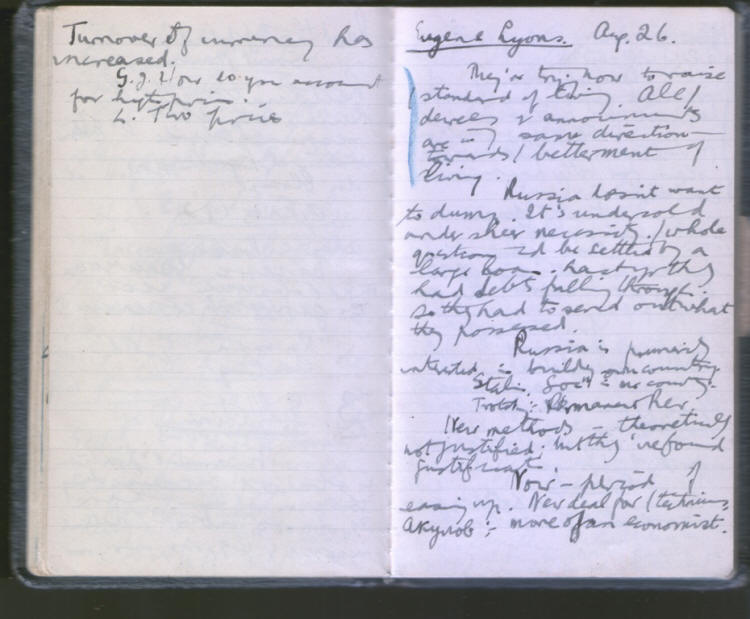 Turnover of currency has
increased.
for high prices.
2. Two prices
Eugene Lyons. Aug. 26.
They're trying now to raise
standard of living. All /
decrees & announcements
are in same direction –
towards / betterment of
living.
Russia doesn't want
to dump. It's undersold
under sheer necessity. / whole
question could be settled by a
large loan. Last yr they
had debts falling through.
so they had to send out what
they possessed.
Russia is primarily
interested in building own country.
Stalin. Soc'm in one country.
Trotsky:- Permanent Rev.
New methods – theoretically
not justified; but they've found
justification.
Now – period of
easing up. New deal for / technicians.
Акулов :- more of an economist.